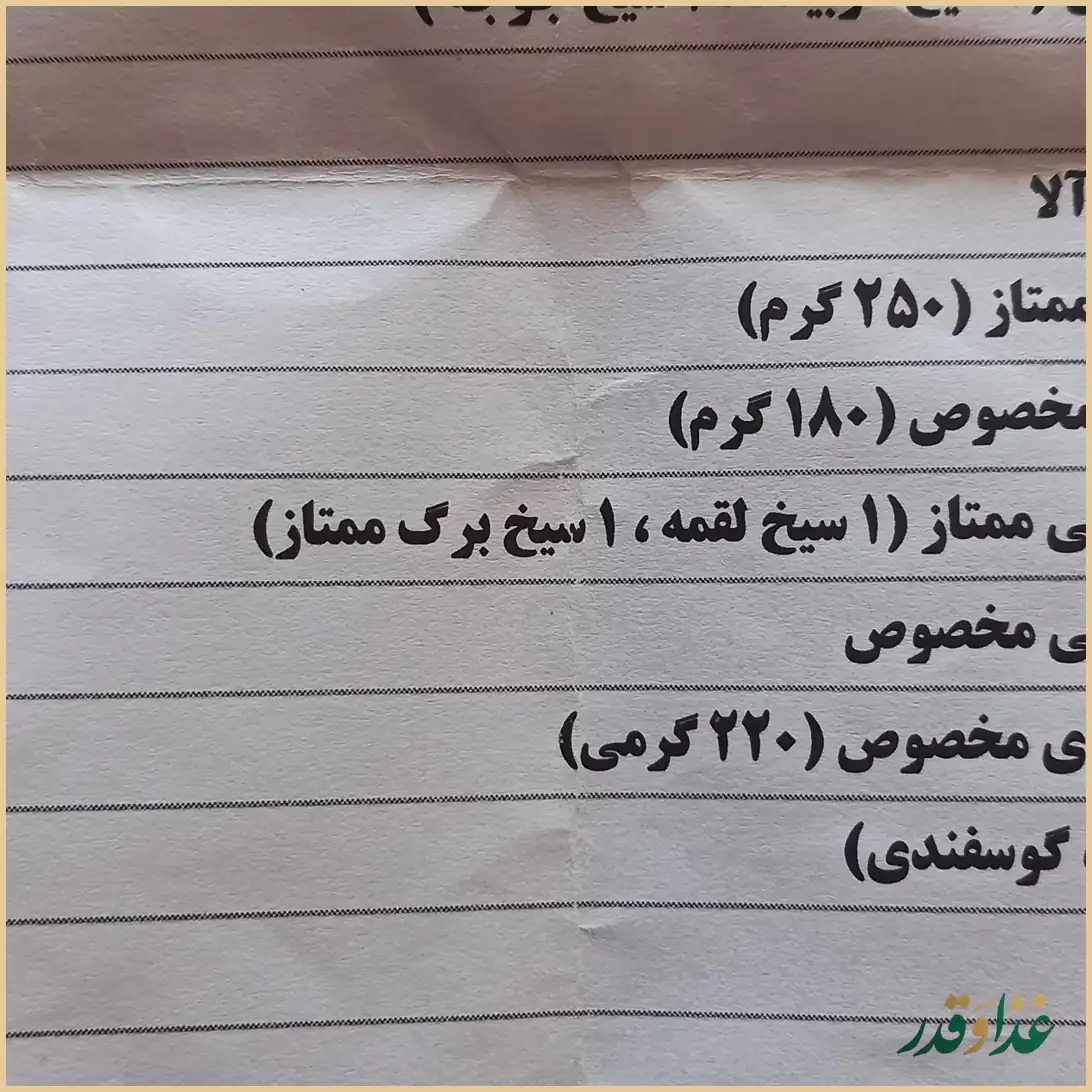 آلا
ممتاز (۲۵۰ گرم)
مخصوص (۱۸۰ گرم)
ی ممتاز (۱ سیخ لقمه ، ۱ سیخ برگ ممتاز)
ی مخصوص
ی مخصوص (۲۲۰ گرمی)
گوسفندی)
غذا و قدر